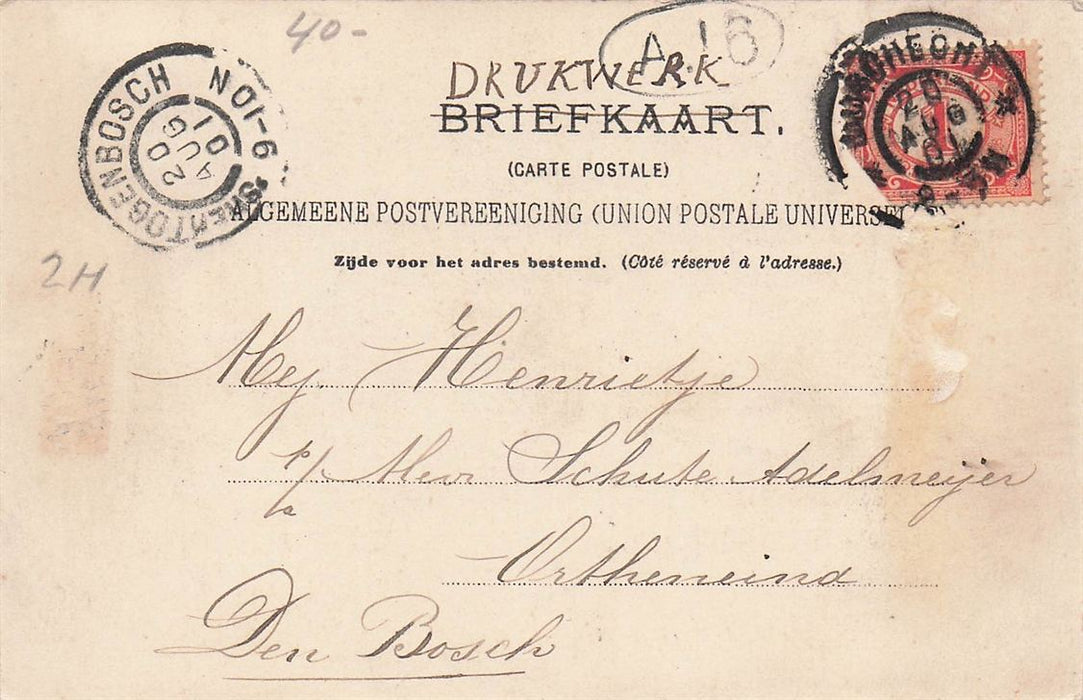 40-
A.16
DRUKWERK
BRIEFKAART.
(CARTE POSTALE)
ALGEMEENE POSTVEREENIGING (UNION POSTALE UNIVERSEL
Zijde voor het adres bestemd. (Côté réservé à l'adresse.)
'SHERTOGENBOSCH
9-10N
20 AUG 01
20 AUG 01
1
2H
Mej Henrietje
p/a Mevr Schute Adelmeijer
Ortheneind
Den Bosch